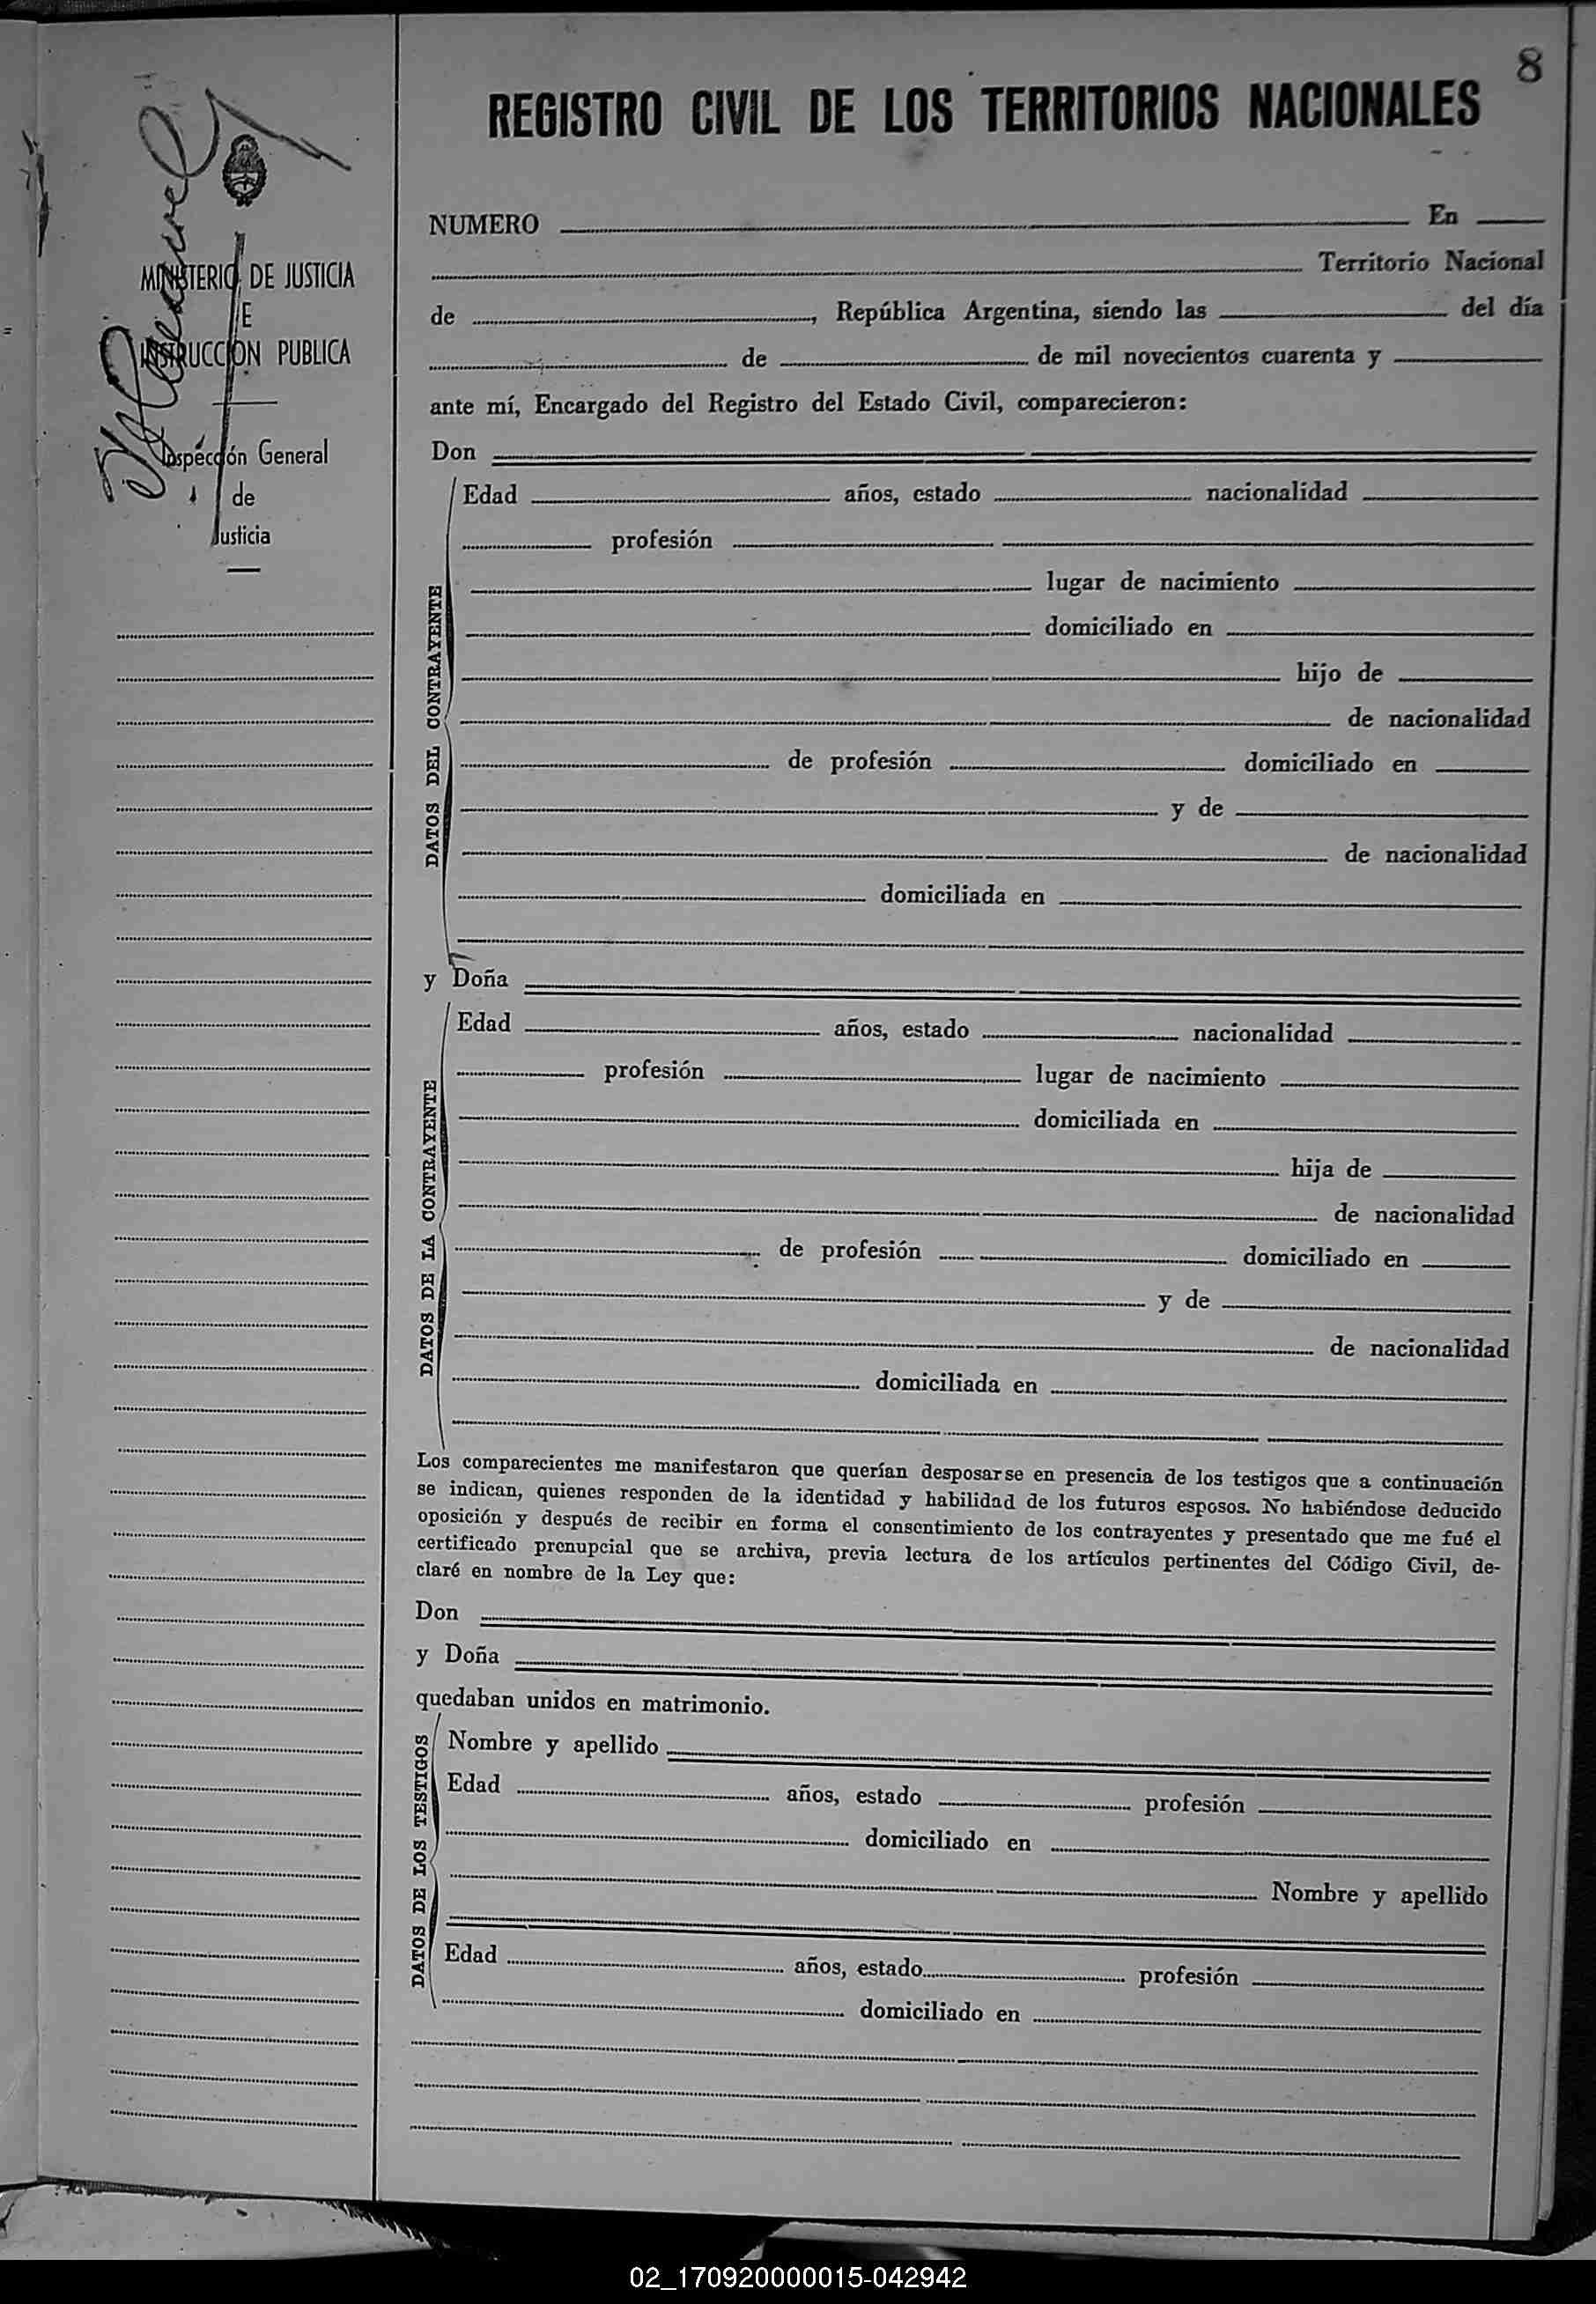 8
REGISTRO CIVIL DE LOS TERRITORIOS NACIONALES
MINISTERIO DE JUSTICIA
E
INSTRUCCION PUBLICA
Inspección General
de
Justicia
NUMERO En
Territorio Nacional
de , República Argentina, siendo las del día
de de mil novecientos cuarenta y
ante mí, Encargado del Registro del Estado Civil, comparecieron:
Don
DATOS DEL CONTRAYENTE
Edad años, estado nacionalidad
profesión
lugar de nacimiento
domiciliado en
hijo de
de nacionalidad
de profesión domiciliado en
y de
de nacionalidad
domiciliada en
y Doña
DATOS DE LA CONTRAYENTE
Edad años, estado nacionalidad
profesión lugar de nacimiento
domiciliada en
hija de
de nacionalidad
de profesión domiciliado en
y de
de nacionalidad
domiciliada en
Los comparecientes me manifestaron que querían desposarse en presencia de los testigos que a continuación
se indican, quienes responden de la identidad y habilidad de los futuros esposos. No habiéndose deducido
oposición y después de recibir en forma el consentimiento de los contrayentes y presentado que me fué el
certificado prenupcial que se archiva, previa lectura de los artículos pertinentes del Código Civil, de-
claré en nombre de la Ley que:
Don
y Doña
quedaban unidos en matrimonio.
DATOS DE LOS TESTIGOS
Nombre y apellido
Edad años, estado profesión
domiciliado en
Nombre y apellido
Edad años, estado profesión
domiciliado en
02_170920000015-042942